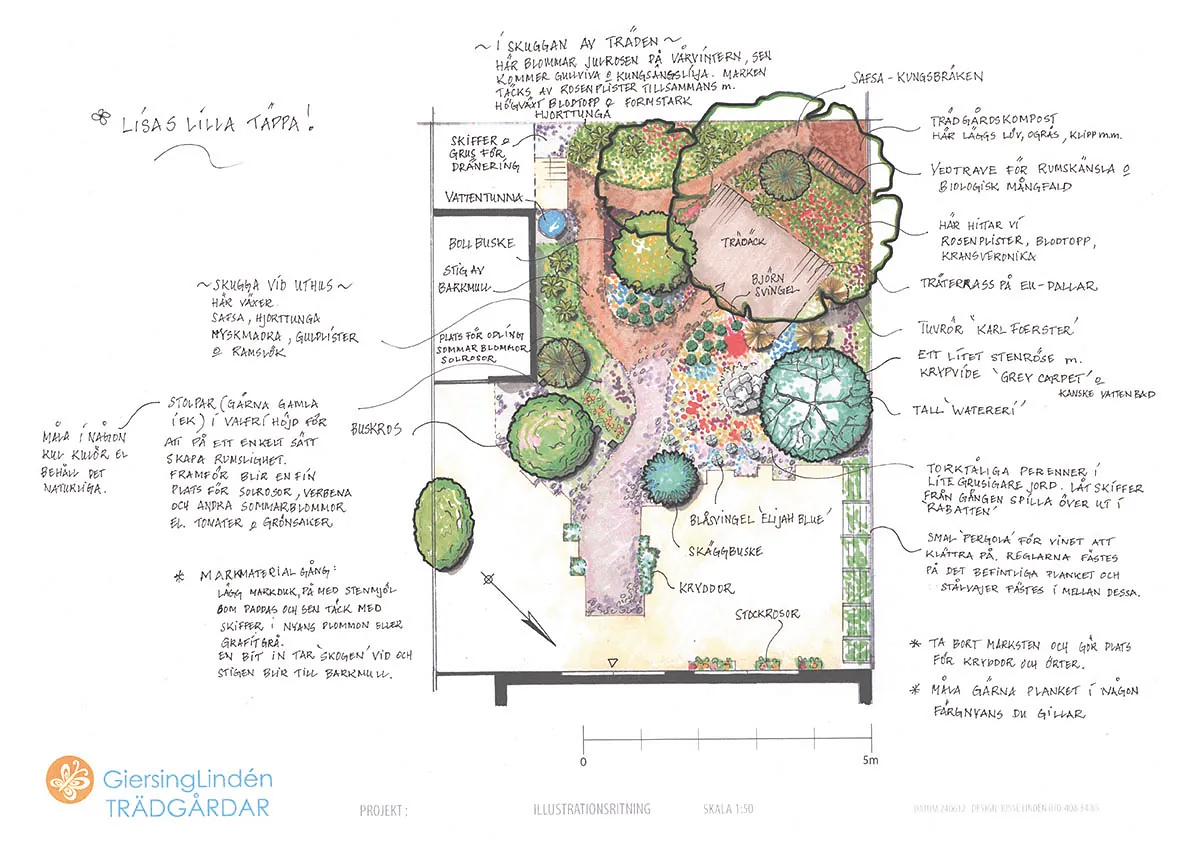 LISAS LILLA TÄPPA!
~ I SKUGGAN AV TRÄDEN ~
HÄR BLOMMAR JULROSEN PÅ VÅRVINTERN, SEN
KOMMER GULLVIVA O KUNGSÄNGSLILJA. MARKEN
TÄCKS AV ROSENPLISTER TILLSAMMANS M.
HÖGVÄXT BLODTOPP O FORMSTARK
HJORTTUNGA
SAFSA - KUNGSBRÄKEN
TRÄDGÅRDSKOMPOST
HÄR LÄGGS LÖV, OGRÄS, KLIPP M.M.
VEDTRAVE FÖR RUMSKÄNSLA O
BIOLOGISK MÅNGFALD
HÄR HITTAR VI
ROSENPLISTER, BLODTOPP,
KRANSVERONIKA
TRÄTERRASS PÅ EU-PALLAR
TUVRÖR 'KARL FOERSTER'
ETT LITET STENRÖSE M.
KRYPVIDE 'GREY CARPET' O
KANSKE VATTENBAD
TALL 'WATERERI'
TORKTÅLIGA PERENNER I
LITE GRUSIGARE JORD. LÅT SKIFFER
FRÅN GÅNGEN SPILLA ÖVER UT I
RABATTEN
SMAL 'PERGOLA' FÖR VINET ATT
KLÄTTRA PÅ. REGLARNA FÄSTES
PÅ DET BEFINTLIGA PLANKET OCH
STÅLVAJER FÄSTES I MELLAN DESSA.
* TA BORT MARKSTEN OCH GÖR PLATS
FÖR KRYDDOR OCH ÖRTER.
* MÅLA GÄRNA PLANKET I NÅGON
FÄRGNYANS DU GILLAR
SKIFFER O
GRUS FÖR
DRÄNERING
VATTENTUNNA
BOLLBUSKE
STIG AV
BARKMULL
PLATS FÖR ODLING!
SOMMARBLOMMOR
SOLROSOR
TRÄDÄCK
BJÖRN
SVINGEL
~ SKUGGA VID UTHUS ~
HÄR VÄXER
SAFSA, HJORTTUNGA
MYSKMADRA, GULPLISTER
O RAMSLÖK
STOLPAR (GÄRNA GAMLA
I EK) I VALFRI HÖJD FÖR
ATT PÅ ETT ENKELT SÄTT
SKAPA RUMSLIGHET.
FRAMFÖR BLIR EN FIN
PLATS FÖR SOLROSOR, VERBENA
OCH ANDRA SOMMARBLOMMOR
EL. TOMATER O GRÖNSAKER
MÅLA I NÅGON
KUL KULÖR EL
BEHÅLL DET
NATURLIGA.
BUSKROS
BLÅSVINGEL 'ELIJAH BLUE'
SKÄGGBUSKE
KRYDDOR
STOCKROSOR
* MARKMATERIAL GÅNG:
LÄGG MARKDUK, PÅ MED STENMJÖL
SOM PADDAS OCH SEN TÄCK MED
SKIFFER I NYANS PLOMMON ELLER
GRAFITGRÅ.
EN BIT IN TAR 'SKOGEN' VID OCH
STIGEN BLIR TILL BARKMULL.
0
5m
GiersingLindén
TRÄDGÅRDAR
PROJEKT :
ILLUSTRATIONSRITNING
SKALA 1:50
DATUM 240612